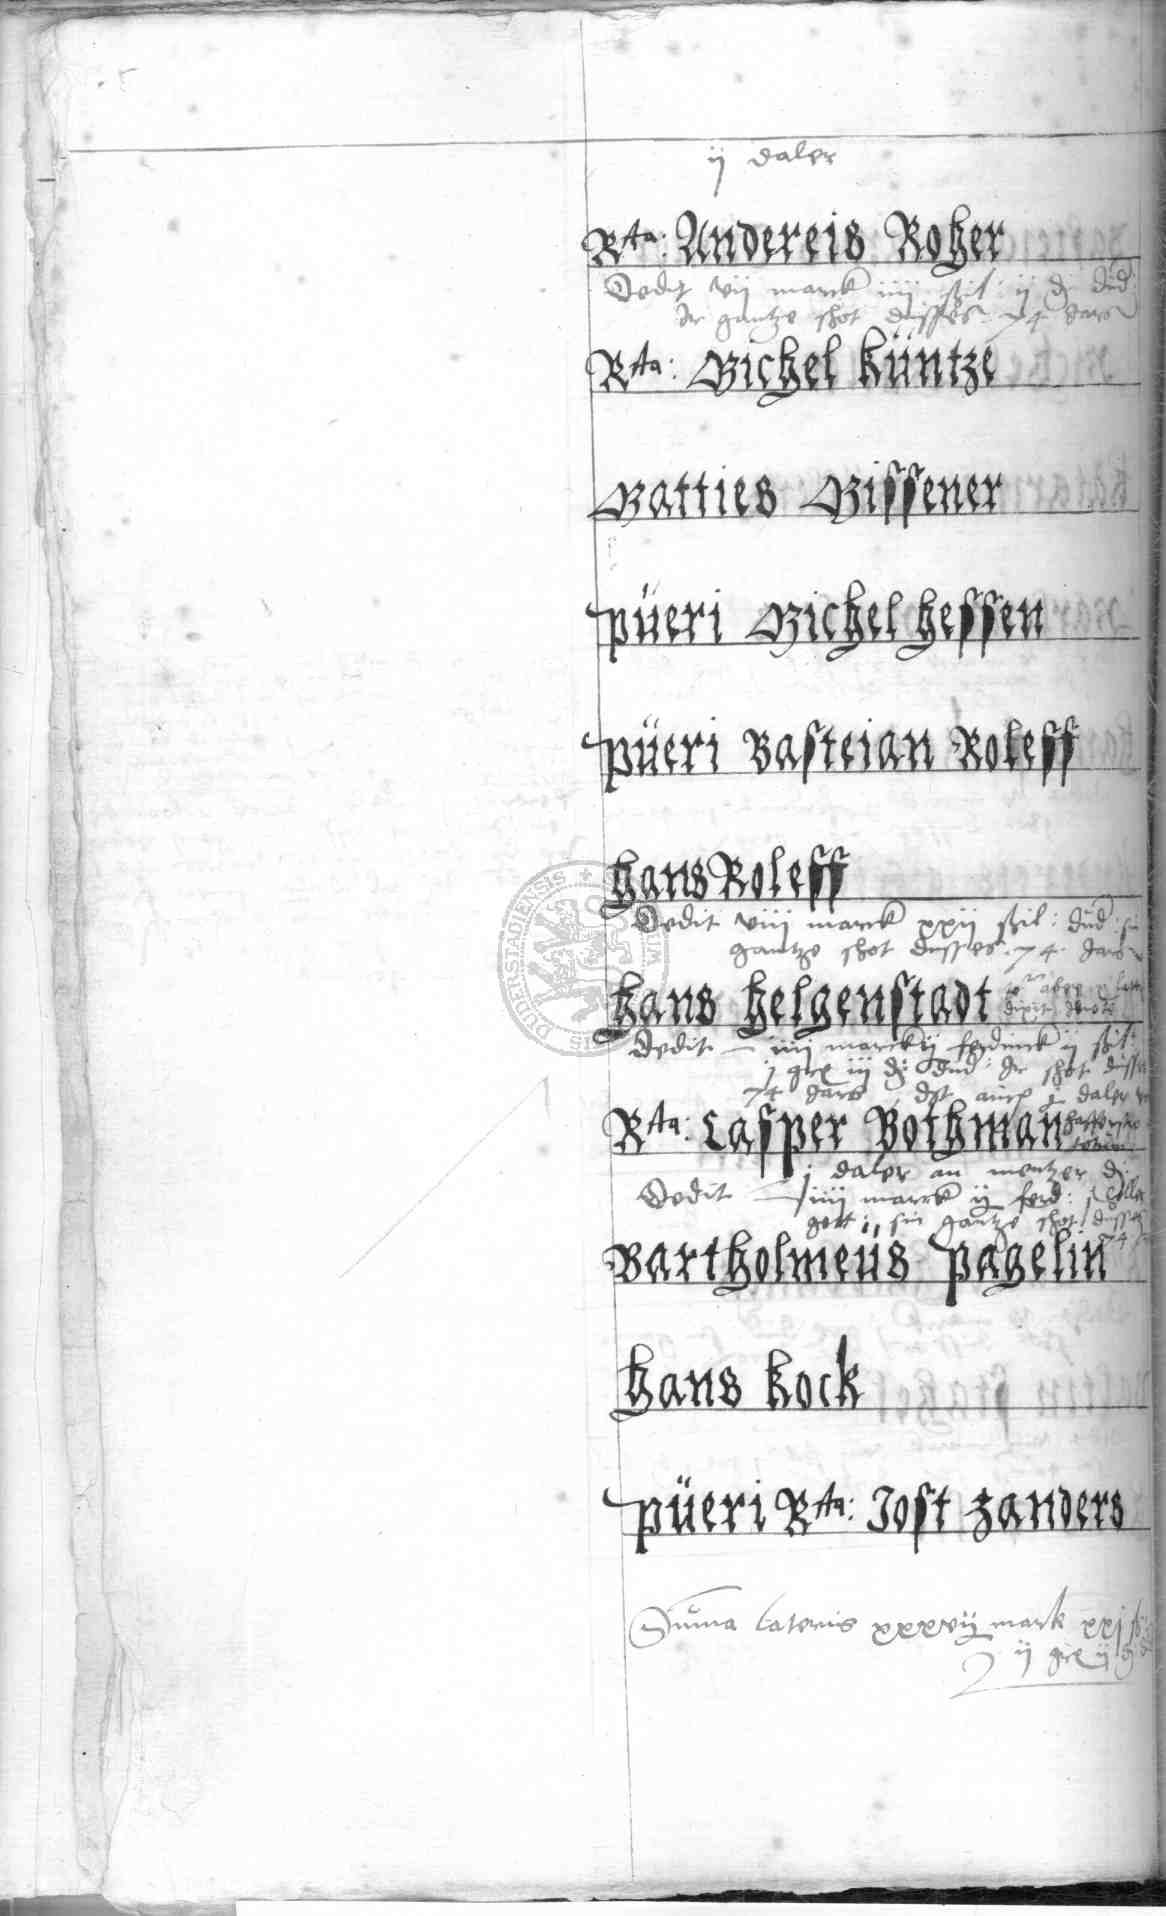 ij daler
Rta: Andereis Roher
Dedit vij marck iiij ßil: ij d dud
de gantze shot dusses 74 Jars
Rta: Michel Küntze
Matties Missener
püeri Michel hessen
püeri Basteian Roleff
hans Roleff
Dedit viij marck xxij ßil: dud: sin
gantze shot dusses 74 Jars
hans helgenstadt
Dedit iiij marck ij ferdinck ij ßil:
iij d: dud: de shot dusses
74 Jars daler
Rta: Casper Bothman
j daler an mentzer d:
Dedit iiij marck ij ferd:
sin gantze shot dusses
74
Bartholmeüs pagelin
hans kock
püeri Rta: Jost zanders
Suma lateris xxxvij mark xxj
ij ij
SIGILLUM DUDERSTADIENSIS